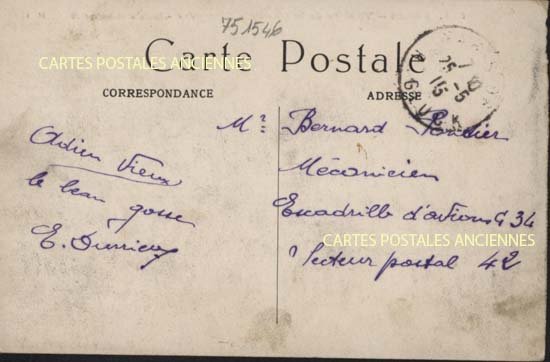 751546
Carte Postale
CARTES POSTALES ANCIENNES
CORRESPONDANCE
ADRESSE
25-5
15
Mr Bernard
Mécanicien
Escadrille d'avions G 34
Secteur postal 42
CARTES POSTALES ANCIENNES
Adieu Vieux
le beau gosse
E.